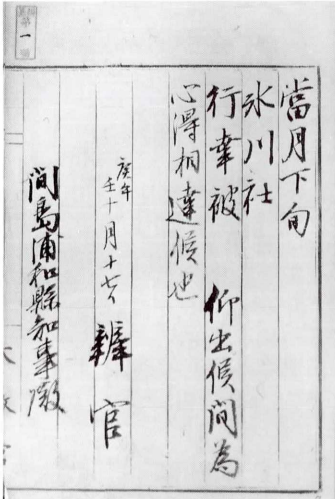 當月下旬
氷川社
行幸被　仰出候間為
心得相達候也
庚午
壬十月十七日　辨官
間島浦和縣知事殿
第一號